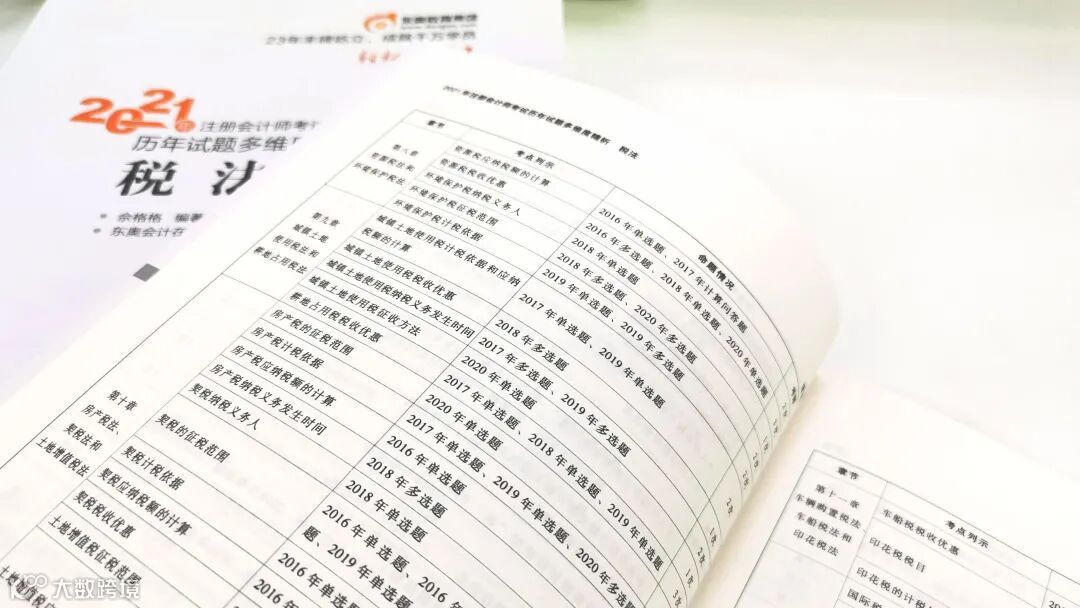 东奥教育集团
2021年注册会计师考
历年试题多维
税法
余格格 编著
东奥会计在
2021年注册会计师考试历年试题多维度精析 税法
章节
考点列示
命题情况
第八章
资源税法和
环境保护税法
资源税应纳税额的计算
资源税税收优惠
环境保护税纳税义务人
环境保护税征税范围
环境保护税计税依据
2016年单选题、2017年计算问答题
2016年多选题、2018年单选题、2020年单选题
2018年单选题
2018年多选题、2020年多选题
2019年单选题、2019年多选题
第九章
城镇土地
使用税法和
耕地占用税法
城镇土地使用税计税依据和应纳
税额的计算
城镇土地使用税税收优惠
城镇土地使用税纳税义务发生时间
城镇土地使用税征收方法
耕地占用税税收优惠
2017年单选题、2019年单选题
2018年多选题
2017年多选题、2019年多选题
2020年单选题
第十章
房产税法、
契税法和
土地增值税法
房产税的征税范围
房产税计税依据
房产税应纳税额的计算
房产税纳税义务发生时间
契税纳税义务人
契税的征税范围
契税计税依据
契税应纳税额的计算
契税税收优惠
土地增值税征税范围
2017年单选题、2018年单选题、2019年单选题
2020年单选题
2017年单选题、2019年单选题、2020年多选题
2016年单选题
2018年多选题
2018年单选题
章节
考点列示
第十一章
车辆购置税法
车船税法和
印花税法
车船税税收优惠
印花税税目
印花税的计税
大数跨境